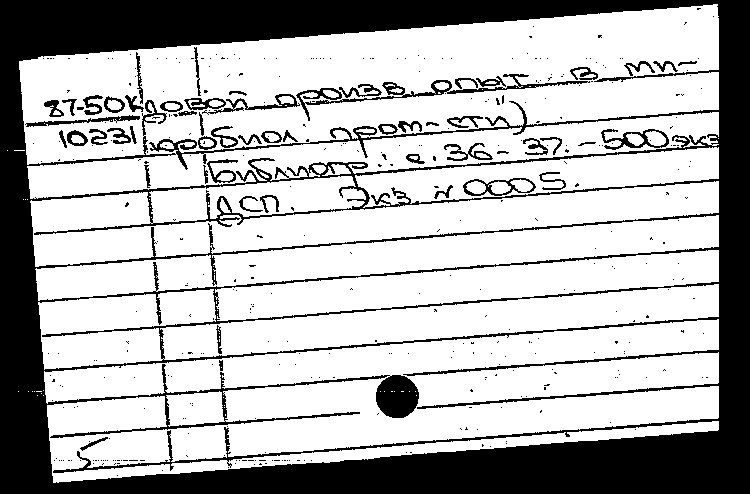 87-50К довой произв. опыт в ми-
10231 кробиол. пром-сти")
Библиогр.: с. 36-37. - 500 экз
ДСП. Экз. №0005.
5